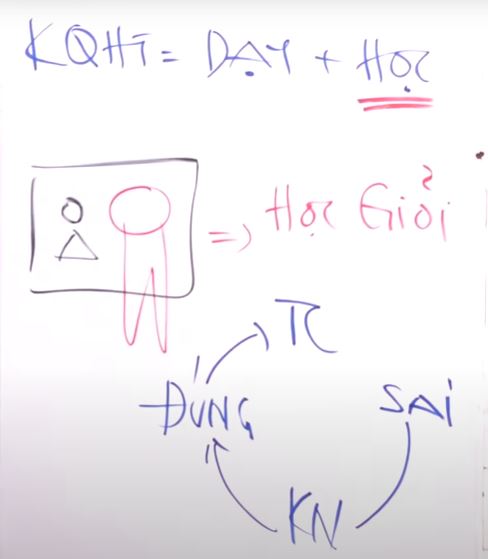 KQHT = DẠY + HỌC
=> Học Giỏi
TC
ĐÚNG SAI
KN